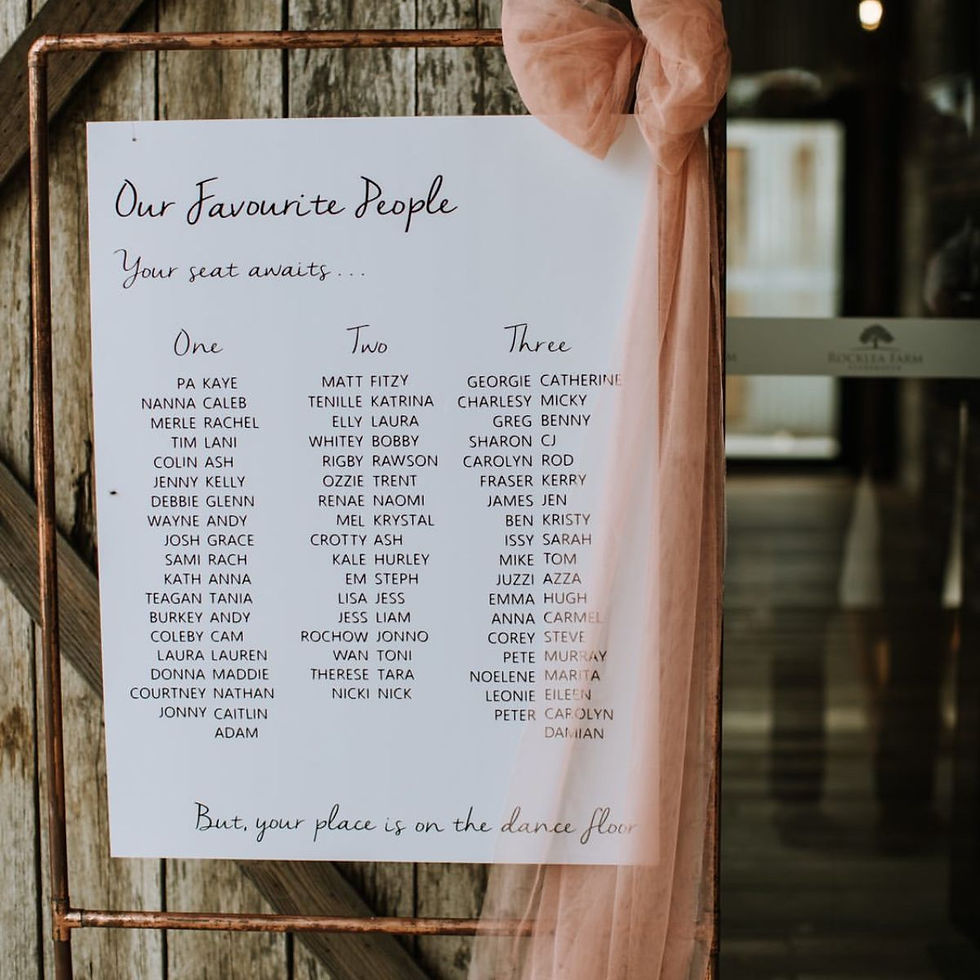 Our Favourite People
Your seat awaits...
One
PA KAYE
NANNA CALEB
MERLE RACHEL
TIM LANI
COLIN ASH
JENNY KELLY
DEBBIE GLENN
WAYNE ANDY
JOSH GRACE
SAMI RACH
KATH ANNA
TEAGAN TANIA
BURKEY ANDY
COLEBY CAM
LAURA LAUREN
DONNA MADDIE
COURTNEY NATHAN
JONNY CAITLIN
ADAM
Two
MATT FITZY
TENILLE KATRINA
ELLY LAURA
WHITEY BOBBY
RIGBY RAWSON
OZZIE TRENT
RENAE NAOMI
MEL KRYSTAL
CROTTY ASH
KALE HURLEY
EM STEPH
LISA JESS
JESS LIAM
ROCHOW JONNO
WAN TONI
THERESE TARA
NICKI NICK
Three
GEORGIE CATHERINE
CHARLESY MICKY
GREG BENNY
SHARON CJ
CAROLYN ROD
FRASER KERRY
JAMES JEN
BEN KRISTY
ISSY SARAH
MIKE TOM
JUZZI AZZA
EMMA HUGH
ANNA CARMEL
COREY STEVE
PETE MURRAY
NOELENE MARITA
LEONIE EILEEN
PETER CAROLYN
DAMIAN
But, your place is on the dance floor
ROCKLEA FARM